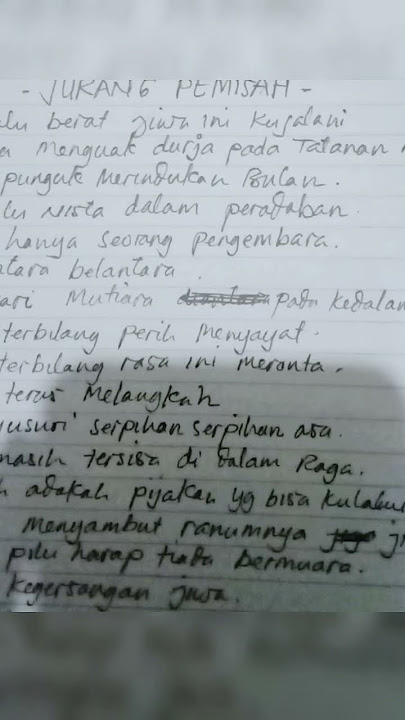 - JURANG PEMISAH -
lu berat jiwa ini kujalani
a menguak durja pada Tatanan
punguk Merindukan Bulan.
lu Nista dalam peradaban.
hanya seorang pengembara.
tara belantara.
ari Mutiara pada kedalam
terbilang perih Menyayat.
terbilang rasa ini meronta.
terus Melangkah
yusuri serpihan serpihan asa.
masih tersisa di dalam Raga.
h adakah pijakan yg bisa kulabu
menyambut ranumnya
pilu harap tiada bermuara.
kegersangan jiwa.